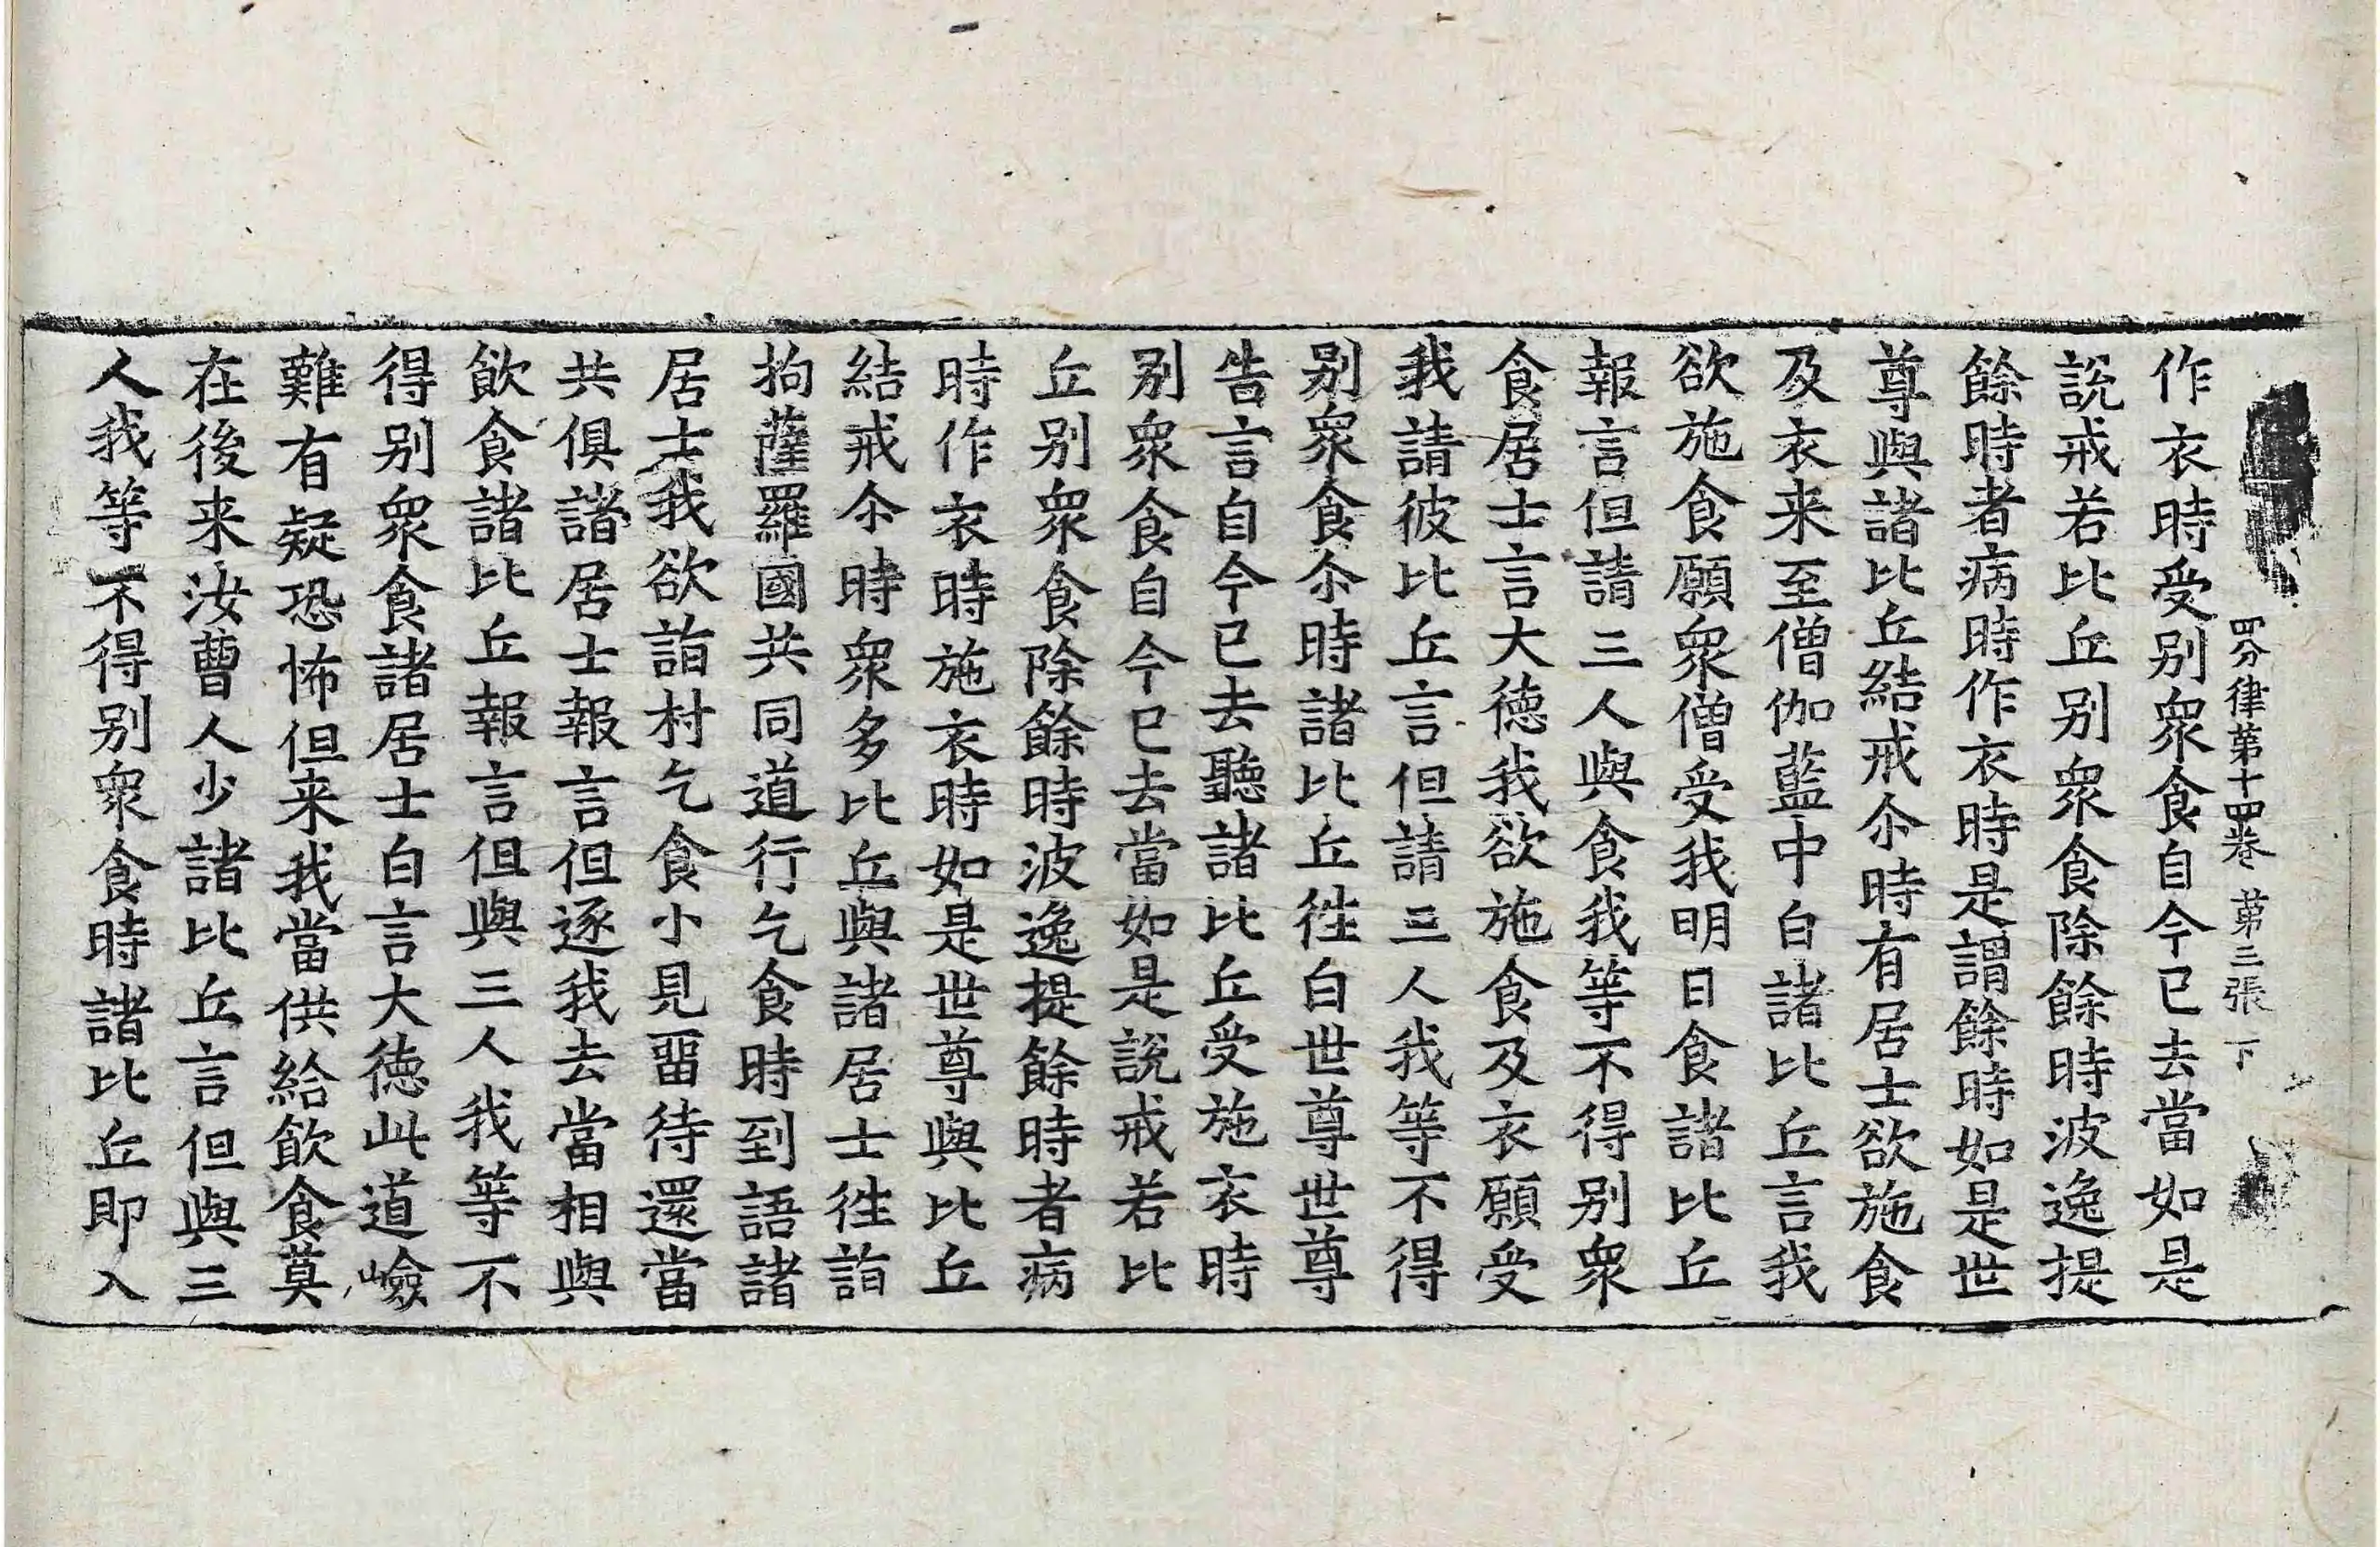 四分律第十四卷 第三張 下
作衣時受別眾食自今已去當如是
說戒若比丘別眾食除餘時波逸提
餘時者病時作衣時是謂餘時如是世
尊與諸比丘結戒尒時有居士欲施食
及衣来至僧伽藍中白諸比丘言我
欲施食願眾僧受我明日食諸比丘
報言但請三人與食我等不得別眾
食居士言大德我欲施食及衣願受
我請彼比丘言但請三人我等不得
別眾食尒時諸比丘徃白世尊世尊
告言自今已去聽諸比丘受施衣時
別眾食自今已去當如是說戒若比
丘別眾食除餘時波逸提餘時者病
時作衣時施衣時如是世尊與比丘
結戒尒時眾多比丘與諸居士徃詣
拘薩羅國共同道行乞食時到語諸
居士我欲詣村乞食小見畱待還當
共俱諸居士報言但逐我去當相與
飲食諸比丘報言但與三人我等不
得別眾食諸居士白言大德此道嶮
難有疑恐怖但来我當供給飲食莫
在後来汝曹人少諸比丘言但與三
人我等不得別眾食時諸比丘即入